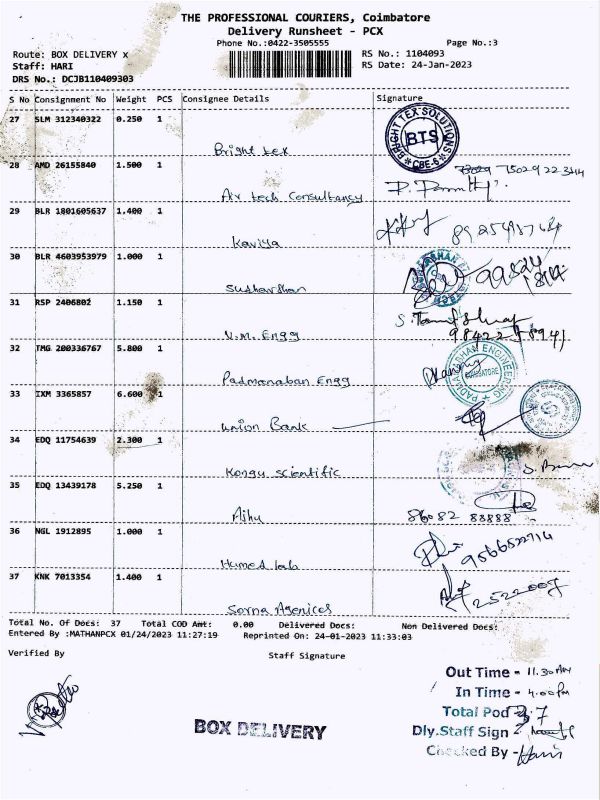 THE PROFESSIONAL COURIERS, Coimbatore
Delivery Runsheet - PCX
Phone No.:0422-3505555 Page No.:3
Route: BOX DELIVERY x RS No.: 1104093
Staff: HARI RS Date: 24-Jan-2023
DRS No.: DCJB110409303
S No Consignment No Weight PCS Consignee Details Signature
27 SLM 312340322 0.250 1
BRIGHT TEX SOLUTIONS BTS CBE-6
Bright tex
28 AMD 26155840 1.500 1
Air tech Consultancy
29 BLR 1801605637 1.400 1
Kaviya
30 BLR 4603953979 1.000 1
Sudharshan
31 RSP 2406802 1.150 1
V.M. Engg
32 TMG 200336767 5.800 1
PADMANABHAN ENGINEERING COIMBATORE
Padmanaban Engg
33 IXM 3365857 6.600 1
Union Bank
34 EDQ 11754639 2.300 1
Kongu Scientific
35 EDQ 13439178 5.250 1
86082 88888
36 NGL 1912895 1.000 1
9566522714
37 KNK 7013354 1.400 1
2522007
Total No. Of Docs: 37 Total COD Amt: 0.00 Delivered Docs: Non Delivered Docs:
Entered By :MATHANPCX 01/24/2023 11:27:19 Reprinted On: 24-01-2023 11:33:03
Verified By Staff Signature
Out Time - 11.30 AM
In Time - 4.00 Pm
Total Pod 37
BOX DELIVERY
Dly.Staff Sign
Checked By - Haris